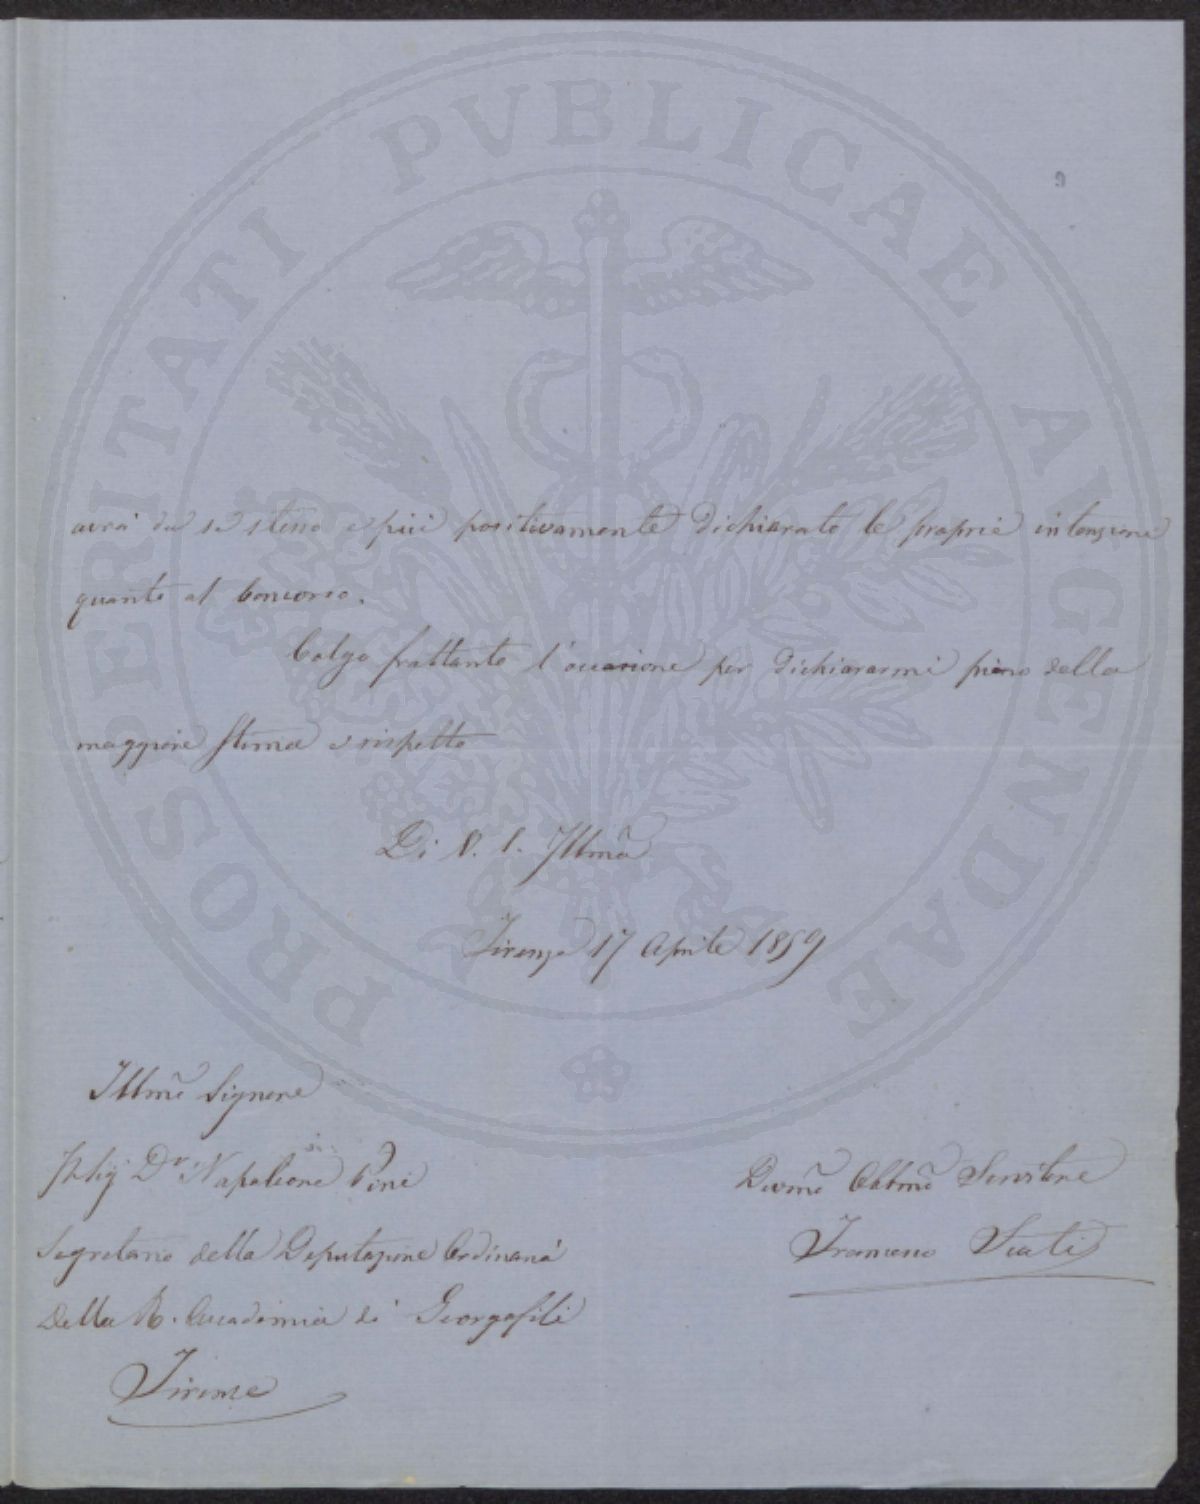 PROSPERITATI PVBLICAE AVGENDAE
avrà da se stesso e più positivamente dichiarato le proprie intenzioni
quanto al Concorso.
Colgo frattanto l'occasione per dichiararmi pieno della
maggiore stima e rispetto
Di V. S. Illma
Firenze 17 Aprile 1859
Illmo Signore
Dr Napoleone Pini
Segretario della Deputazione Ordinaria
Della R. Accademia dei Georgofili
Firenze
Devmo Obbmo Servitore
Francesco